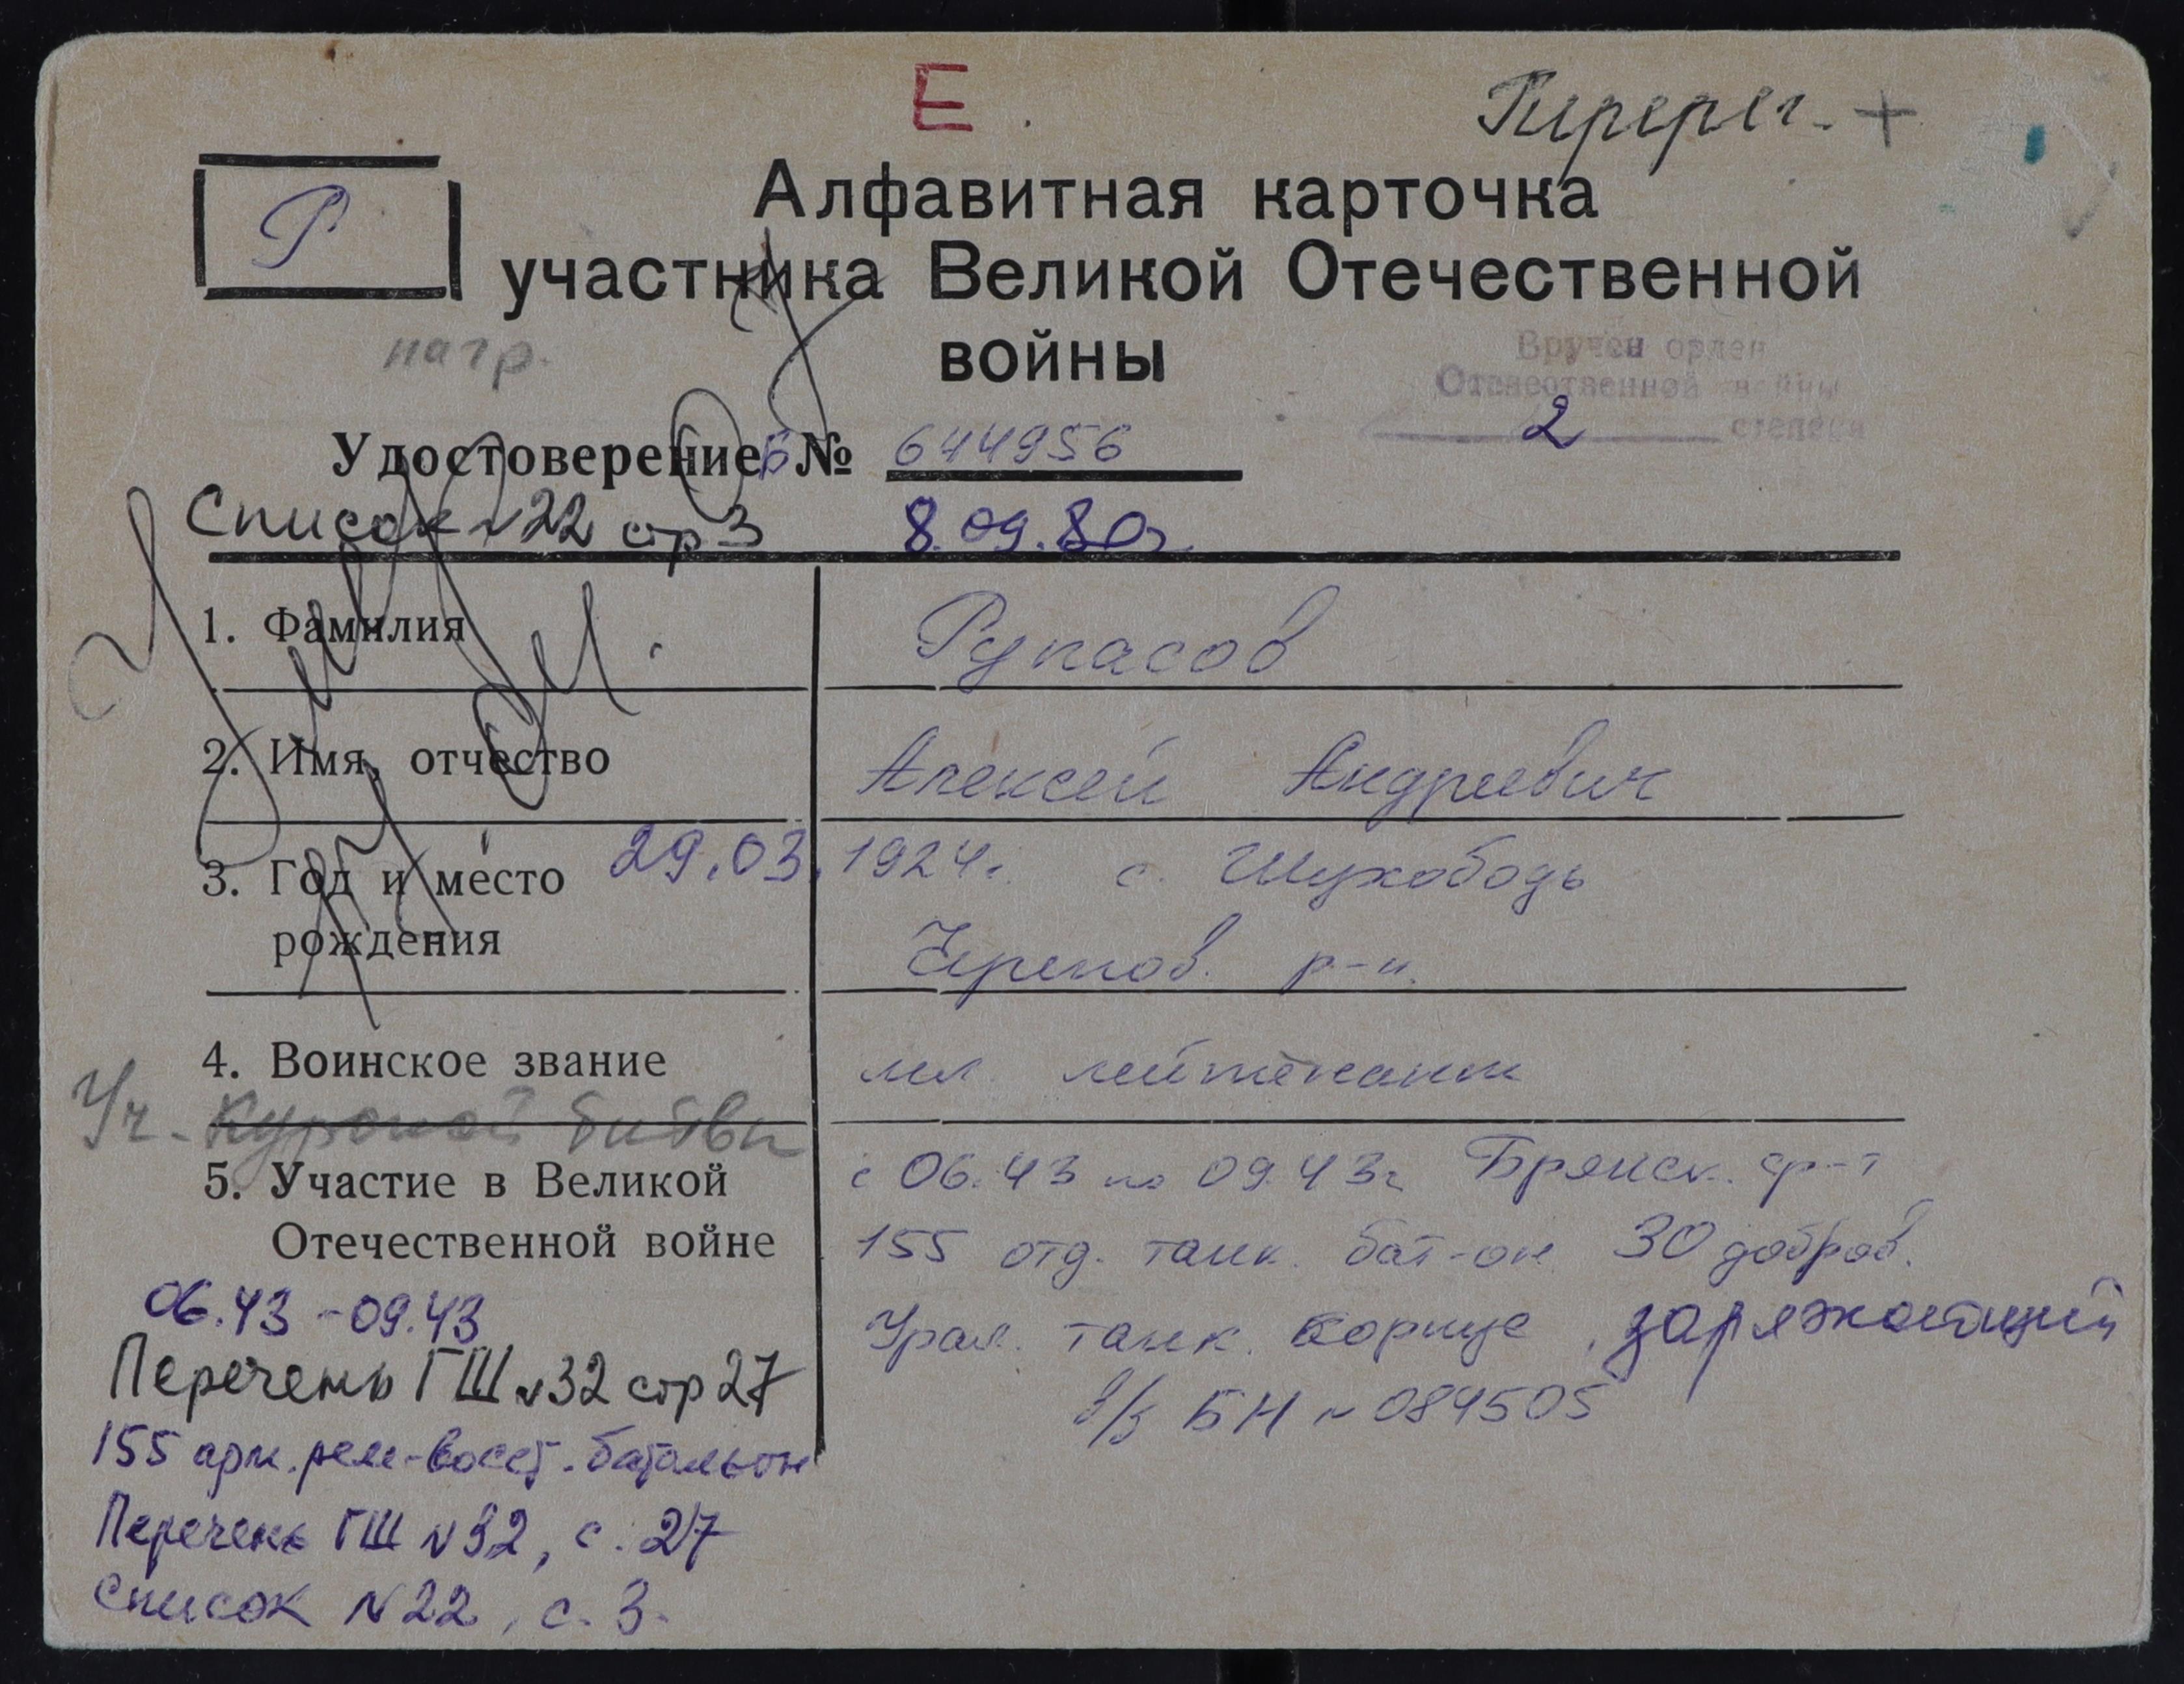 Е
Перерег. +
Р
Алфавитная карточка
участника Великой Отечественной
войны
нагр.
Вручен орден
Отечественной войны
2 степени
Удостоверение Б № 644956
Список № 22 стр 3 8.09.80г.
1. Фамилия Рупасов
2. Имя, отчество Алексей Андреевич
3. Год и место 29.03.1924г. с. Шухободь
рождения Черепов. р-н.
4. Воинское звание мл. лейтенант
Уч. Курской битвы
5. Участие в Великой с 06.43 по 09.43г Брянск. ф-т
Отечественной войне 155 отд. танк. бат-он 30 добров.
06.43 - 09.43
Урал. танк. корпус, заряжающий
Перечень ГШ № 32 стр 27
в/б БН № 084505
155 арм. рем-восст. батальон
Перечень ГШ № 32, с. 27
Список № 22, с. 3.